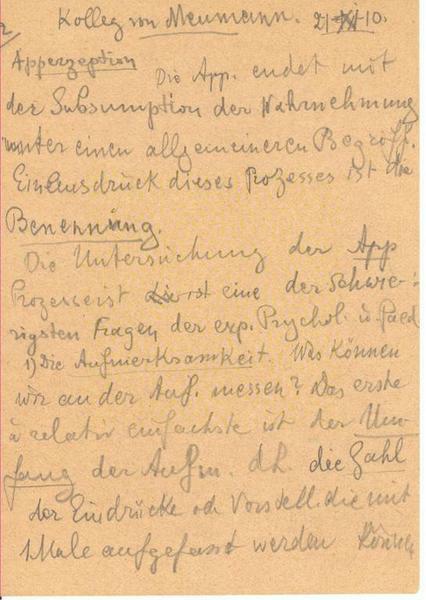 2
Kolleg von Meumann. 21-XI-10.
Apperzeption
Die App. endet mit
der Subsumption der Wahrnehmung
unter einen allgemeineren Begriff.
Ein Ausdruck dieses Prozesses ist die
Benennung.
Die Untersuchung der App
Prozesse ist die ist eine der Schwie-
rigsten Fragen der exp. Psychol. u Paed
1) Die Aufmerksamkeit. Was können
wir an der Auf. messen? Das erste
u relativ einfachste ist der Um-
fang der Aufm. dh. die Zahl
der Eindrücke od Vorstell. die mit
1 Male aufgefasst werden können